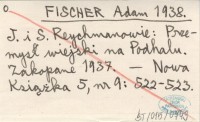 o
FISCHER Adam 1938.
J. i S. Reychmanowie: Prze-
mysł wiejski na Podhalu.
Zakopane 1937. — Nowa
Książka 5, nr 9: 522-523.